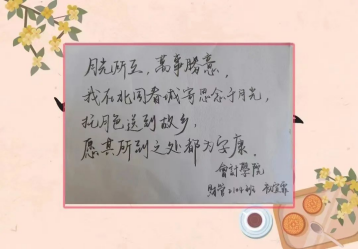 月光所至，万事胜意，
我在北国春城寄思念于月光，
托月色送到故乡，
愿其所到之处都为安康。
會計學院
财管2104班